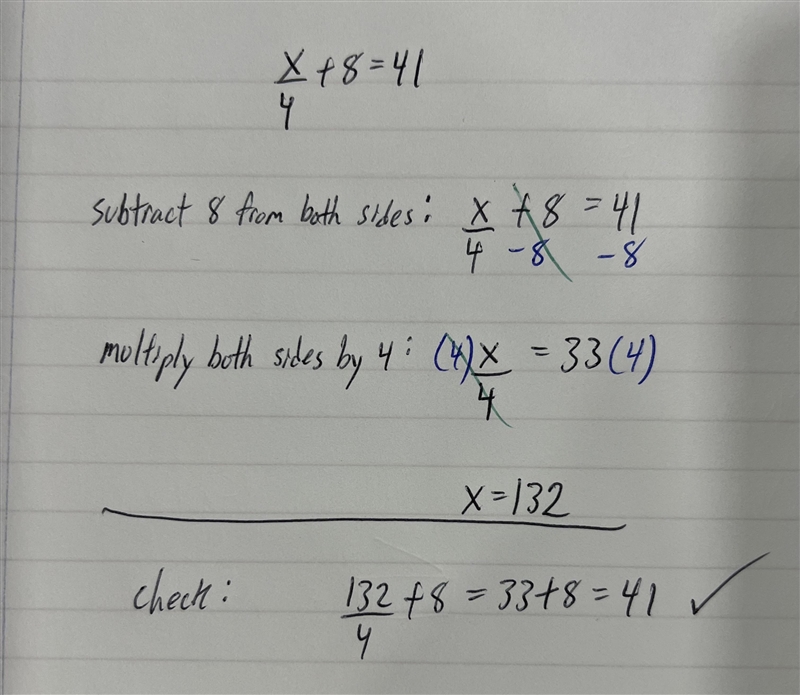 x/4 + 8 = 41
subtract 8 from both sides: x/4 + 8 = 41
- 8 - 8
multiply both sides by 4: (4) x/4 = 33 (4)
x = 132
check: 132/4 + 8 = 33 + 8 = 41 ✓